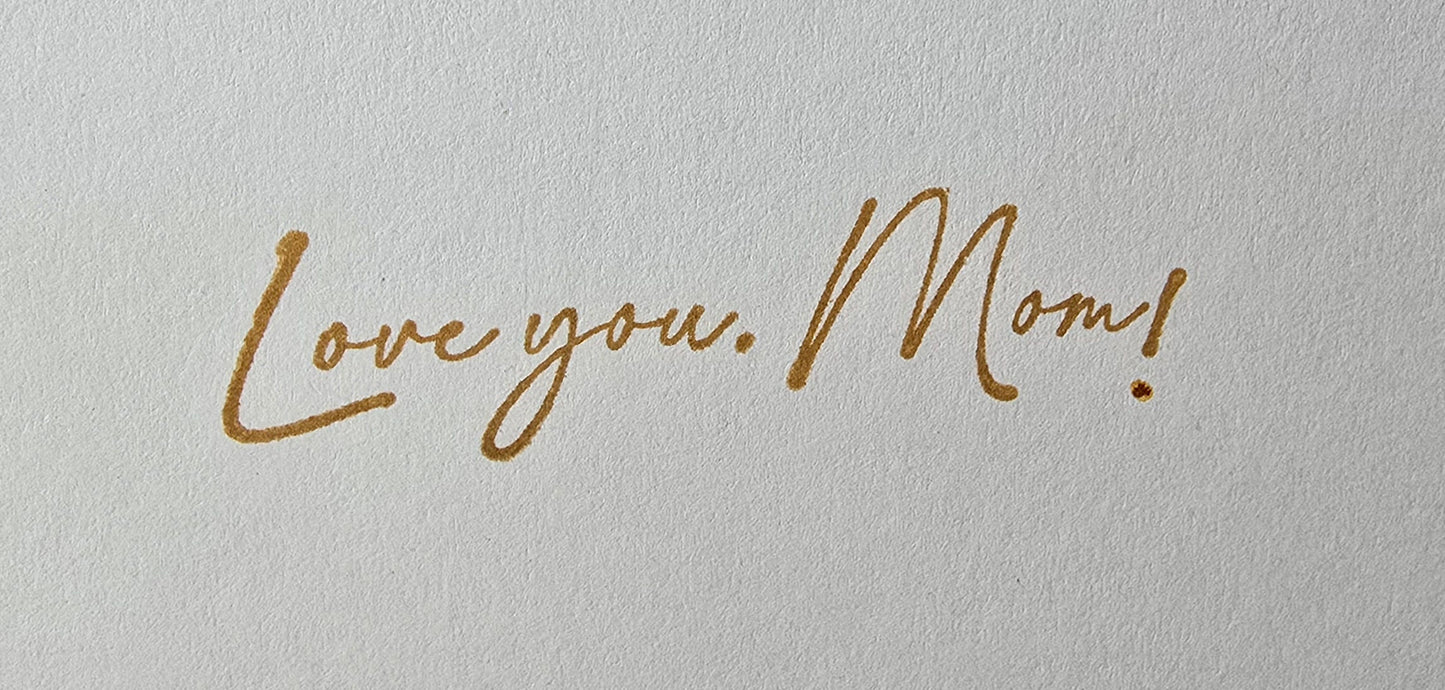 Love you. Mom!